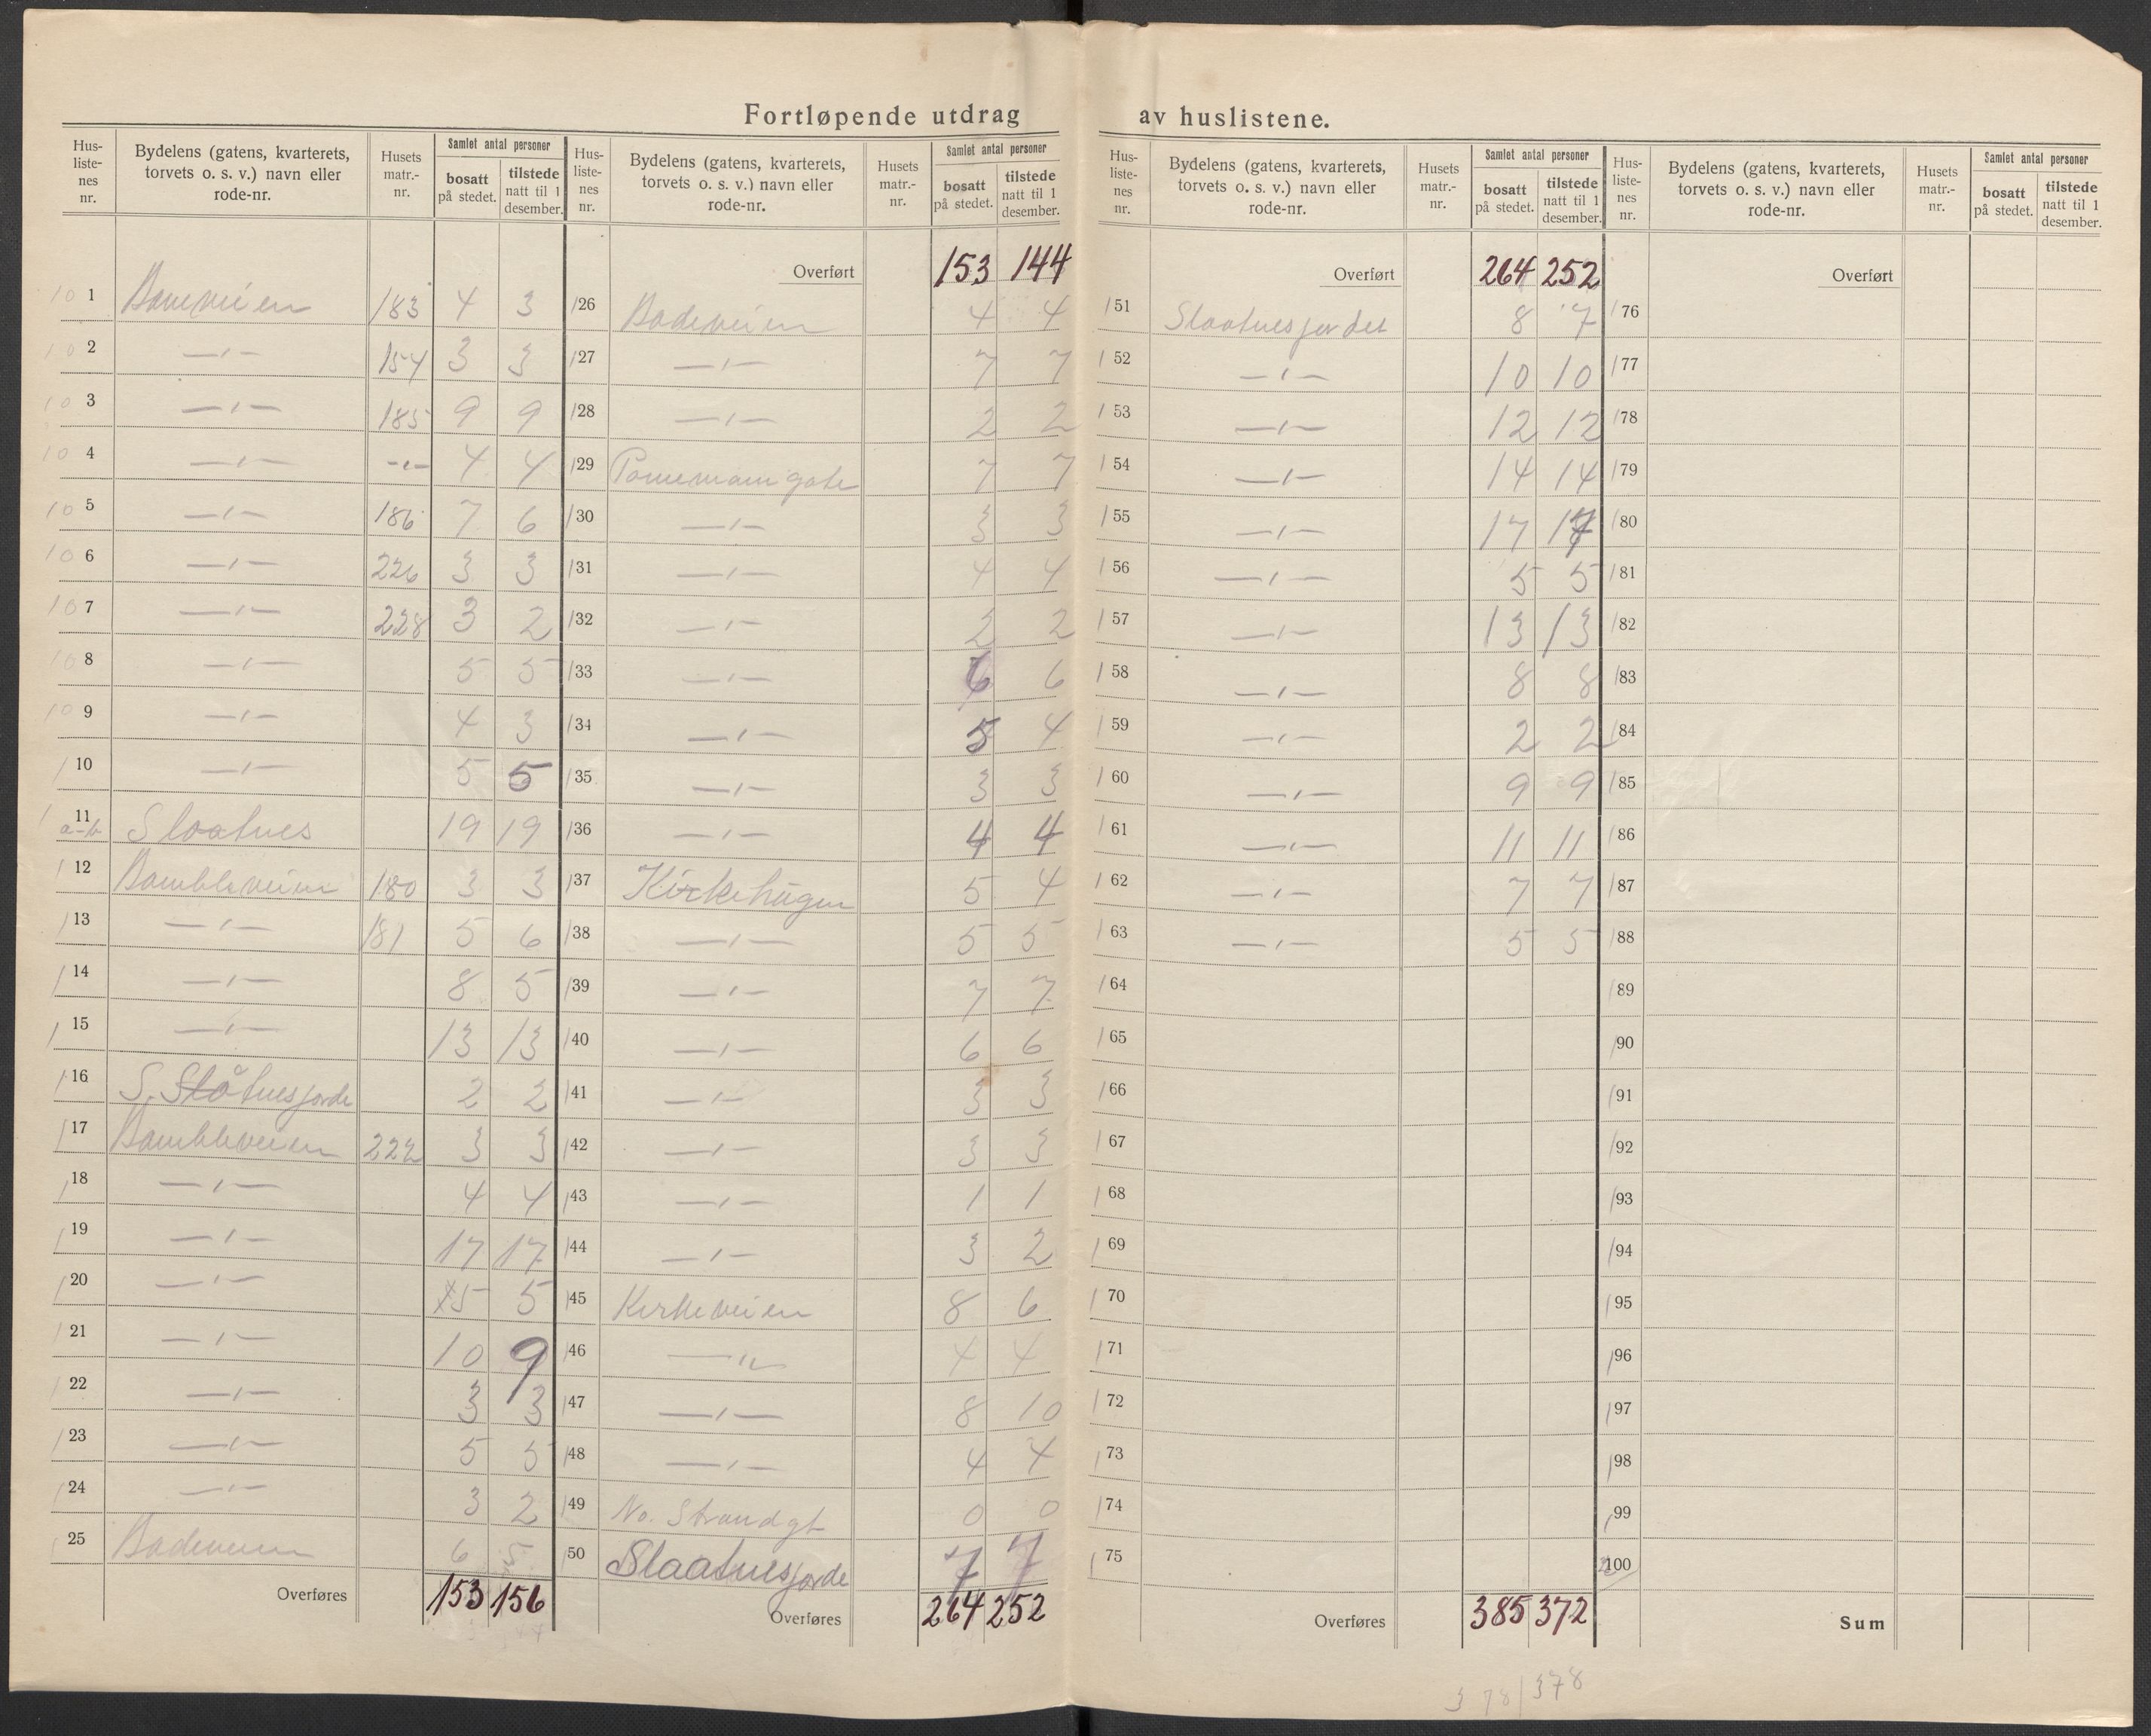 Fortløpende utdrag av huslistene.
Hus-liste-nes nr. | Bydelens (gatens, kvarterets, torvets o. s. v.) navn eller rode-nr. | Husets matr.-nr. | Samlet antal personer | bosatt på stedet. | tilstede natt til 1 desember.
101 183 4 3
102 —"— 154 3 3
103 —"— 185 9 9
104 —"— -"- 4 4
105 —"— 186 7 6
106 —"— 226 3 3
107 —"— 228 3 2
108 —"— 5 5
109 —"— 4 3
110 —"— 5 5
111 a-b Slaatnes 19 19
112 Bambleveien 180 3 3
113 —"— 181 5 6
114 —"— 8 5
115 —"— 13 13
116 S. Slåtnesjorde 2 2
117 Bambleveien 222 3 3
118 —"— 4 4
119 —"— 17 17
120 —"— 5 5
121 —"— 10 9
122 —"— 3 3
123 —"— 5 5
124 —"— 3 2
125 Badeveien 6 5
Overføres 153 156
Hus-liste-nes nr. | Bydelens (gatens, kvarterets, torvets o. s. v.) navn eller rode-nr. | Husets matr.-nr. | Samlet antal personer | bosatt på stedet. | tilstede natt til 1 desember.
Overført 153 144
126 Badeveien 4 4
127 —"— 7 7
128 —"— 2 2
129 gate 7 7
130 —"— 3 3
131 —"— 4 4
132 —"— 2 2
133 —"— 6 6
134 —"— 5 4
135 —"— 3 3
136 —"— 4 4
137 Kirkehaugen 5 4
138 —"— 5 5
139 —"— 7 7
140 —"— 6 6
141 —"— 3 3
142 —"— 3 3
143 —"— 1 1
144 —"— 3 2
145 Kirkeveien 8 6
146 —"— 4 4
147 —"— 8 10
148 —"— 4 4
149 No. Strandgt 0 0
150 Slaatnesjorde 7 7
Overføres 264 252
Hus-liste-nes nr. | Bydelens (gatens, kvarterets, torvets o. s. v.) navn eller rode-nr. | Husets matr.-nr. | Samlet antal personer | bosatt på stedet. | tilstede natt til 1 desember.
Overført 264 252
151 Slaatnesjordet 8 7
152 —"— 10 10
153 —"— 12 12
154 —"— 14 14
155 —"— 17 17
156 —"— 5 5
157 —"— 13 13
158 —"— 8 8
159 —"— 2 2
160 —"— 9 9
161 —"— 11 11
162 —"— 7 7
163 —"— 5 5
164
165
166
167
168
169
170
171
172
173
174
175
Overføres 385 372
378 | 378
Hus-liste-nes nr. | Bydelens (gatens, kvarterets, torvets o. s. v.) navn eller rode-nr. | Husets matr.-nr. | Samlet antal personer | bosatt på stedet. | tilstede natt til 1 desember.
Overført
176
177
178
179
180
181
182
183
184
185
186
187
188
189
190
191
192
193
194
195
196
197
198
199
100
Sum